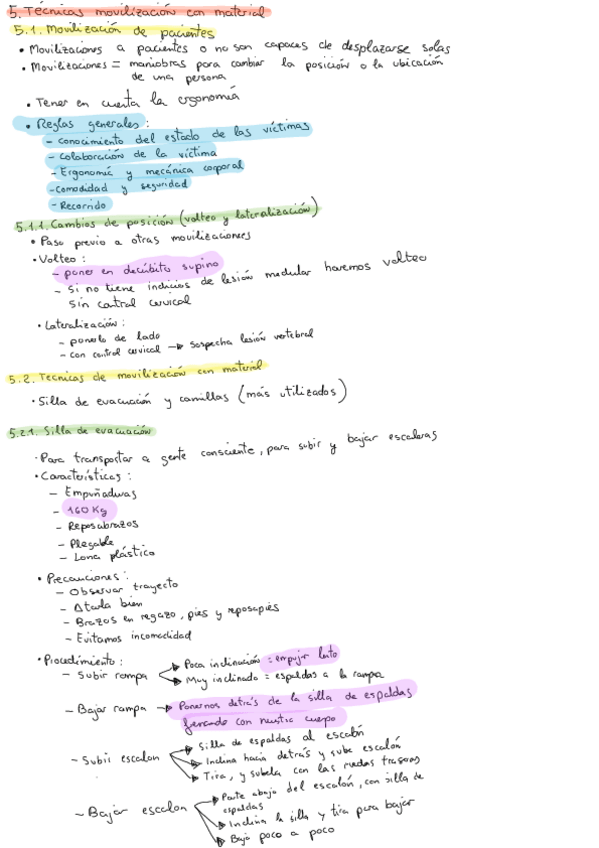 5. Técnicas movilización con material
5.1. Movilización de pacientes
• Movilizaciones a pacientes o no son capaces de desplazarse solas
• Movilizaciones = maniobras para cambiar la posición o la ubicación
de una persona
• Tener en cuenta la ergonomía
• Reglas generales:
- conocimiento del estado de las víctimas
- Colaboración de la víctima
- Ergonomía y mecánica corporal
- Comodidad y seguridad
- Recorrido
5.1.1. Cambios de posición (volteo y lateralización)
• Paso previo a otras movilizaciones
• Volteo:
- poner en decúbito supino
- Si no tiene indicios de lesión medular haremos volteo
sin control cervical
• Lateralización:
- ponerlo de lado
- con control cervical → Sospecha lesión vertebral
5.2. Tecnicas de movilización con material
• Silla de evacuación y camillas (más utilizados)
5.2.1. Silla de evacuación
• Para transportar a gente consciente, para subir y bajar escaleras
• Características:
- Empuñaduras
- 160 Kg
- Reposabrazos
- Plegable
- Lona plástico
• Precauciones:
- Observar trayecto
- Atarla bien
- Brazos en regazo, pies y reposapiés
- Evitamos incomodidad
• Procedimiento:
- Subir rampa → Poca inclinación = empujar lento
→ Muy inclinado = espaldas a la rampa
- Bajar rampa → Ponernos detrás de la silla de espaldas
frenando con nuestro cuerpo
- Subir escalon → Silla de espaldas al escalón
→ Inclina hacia detrás y sube escalón
→ Tira, y subela con las ruedas traseras
- Bajar escalon → Parte abajo del escalón, con silla de
espaldas
→ Inclina la silla y tira para bajar
→ Baja poco a poco